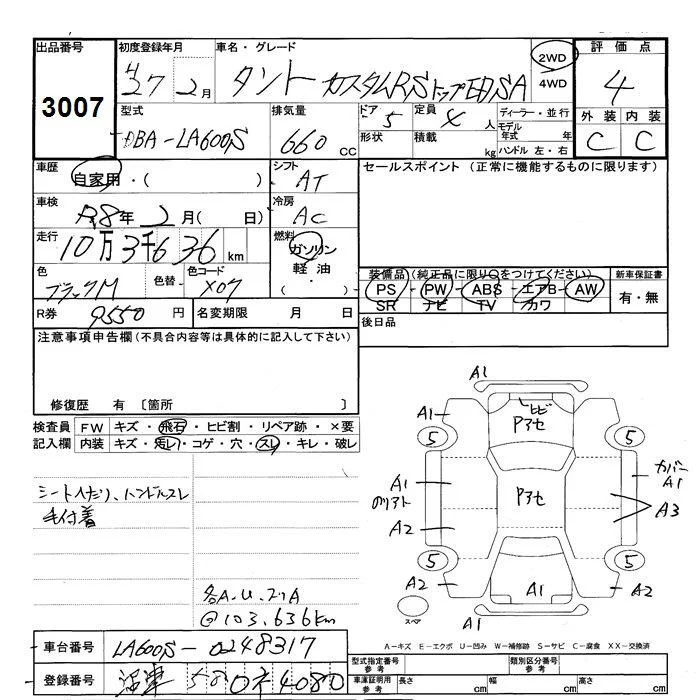 出品番号 初度登録年月 車名・グレード 2WD 4WD 評価点
3007 H27 2月 タント カスタムRSトップEDSA 4
型式 排気量 ドア 定員 ディーラー・並行 外装 内装
DBA-LA600S 660cc 5 4人 モデル年式 年 C C
形状 積載 kg ハンドル 左・右
車歴 シフト セールスポイント (正常に機能するものに限ります)
自家用・( ) AT
車検 冷房
R8年 2月( 日) AC
走行 燃料
10万3千636km ガソリン
軽油
・( )
色 色替 色コード 装備品(純正品に限り○をつけてください) 新車保証書
ブラックM X07 PS PW ABS エアB AW 有・無
SR ナビ TV カワ
R券 9550円 名変期限 月 日 後日品
注意事項申告欄(不具合内容等は具体的に記入して下さい)
修復歴 有 〔箇所 〕
検査員 FW キズ・飛石・ヒビ割・リペア跡・×要
記入欄 内装 キズ・汚レ・コゲ・穴・スレ・キレ・破レ
シートヘタリ、ハンドルスレ
毛付着
各A.U.
@103,636km
A1
A1 ヒビ
Pアセ
5 5
A1 Pアセ カバー A1
A2 A3
5 5
A2 A1 A2
スペア A1
A-キズ E-エクボ U-凹み W-補修跡 S-サビ C-腐食 XX-交換済
車台番号 LA600S-0248317
登録番号 沼津 580 4080
型式指定番号 参考 類別区分番号 参考
車庫証明用 参考 長さ cm 幅 cm 高さ cm